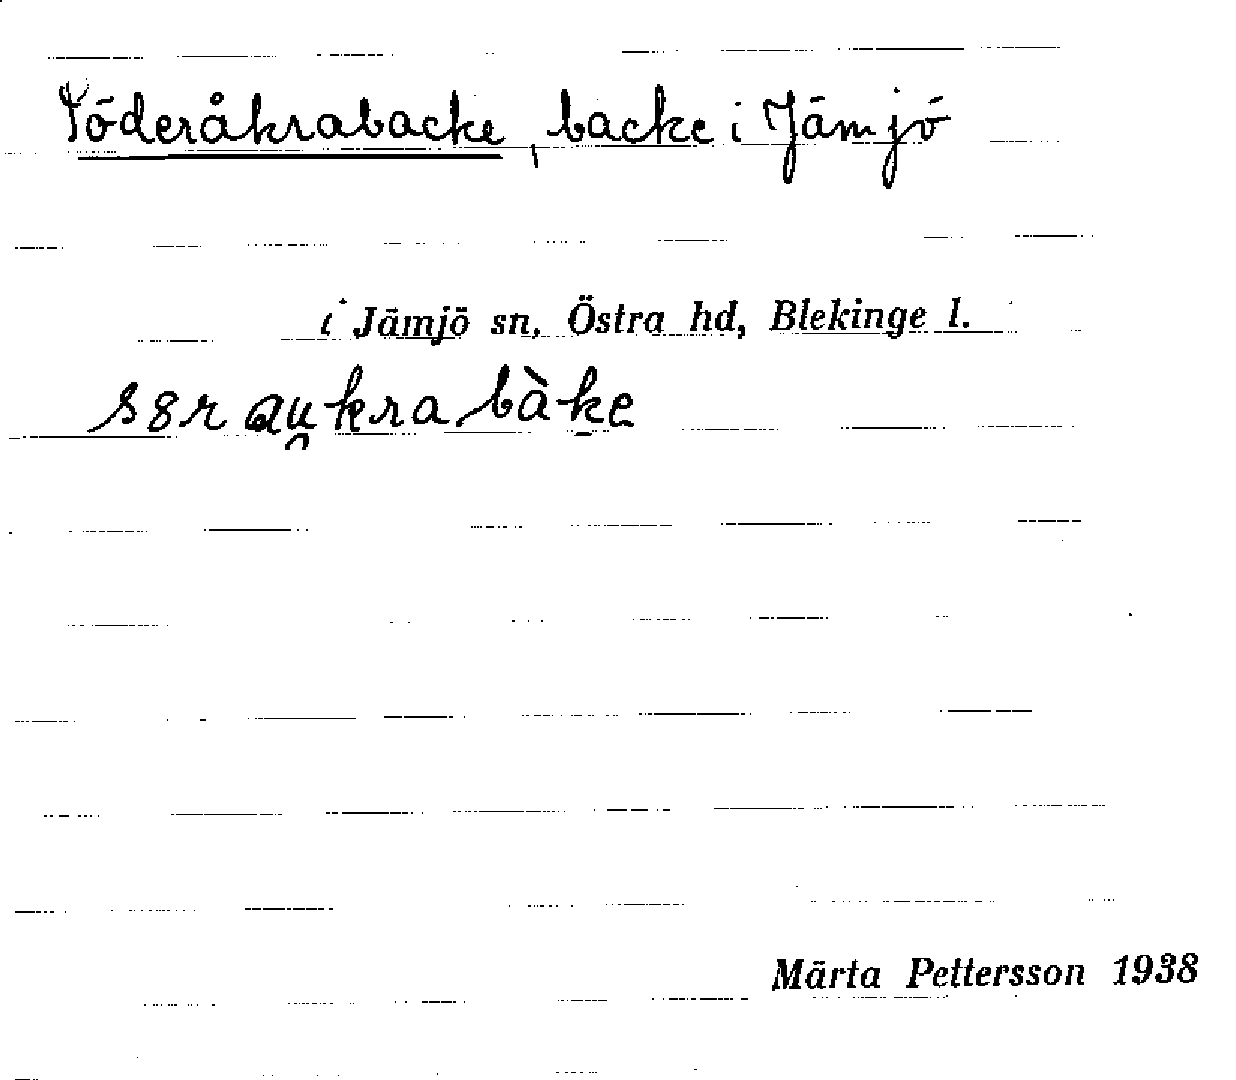 Söderåkrabacke, backe i Jämjö
i Jämjö sn, Östra hd, Blekinge l.
Märta Pettersson 1938